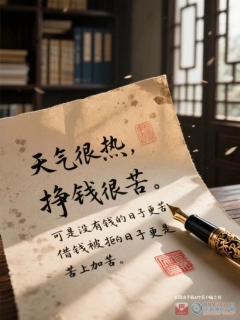 天气很热，
挣钱很苦。
可是没有钱的日子更苦
借钱被拒的日子更是
苦上加苦。